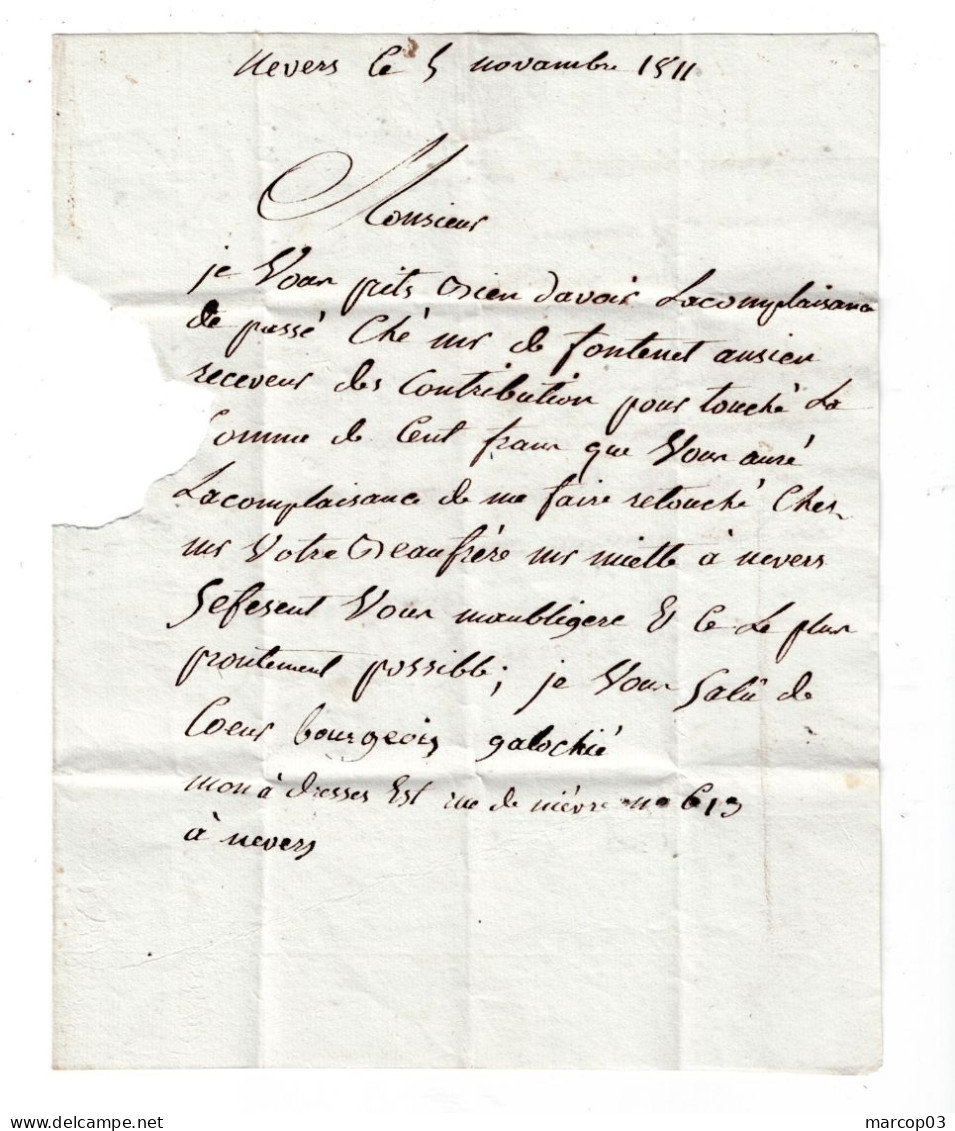 nevers le 5 novambre 1811
Monsieur
je Vous prits Bien davoir Lacomplaisance
de passé Ché mr de fontenet ansien
receveur des Contribution pour touché La
somme de Cent franc que Vous auré
Lacomplaisance de me faire retouché Ches
mr Votre Beaufrére mr miette à nevers
Sefesent Vous maubligere & Ce Le plus
prontement possible; je Vous Salü de
Coeur bourgeois galochié
mon à dresses Est rue de niévre no 613
à nevers
delcampe.net
marcop03